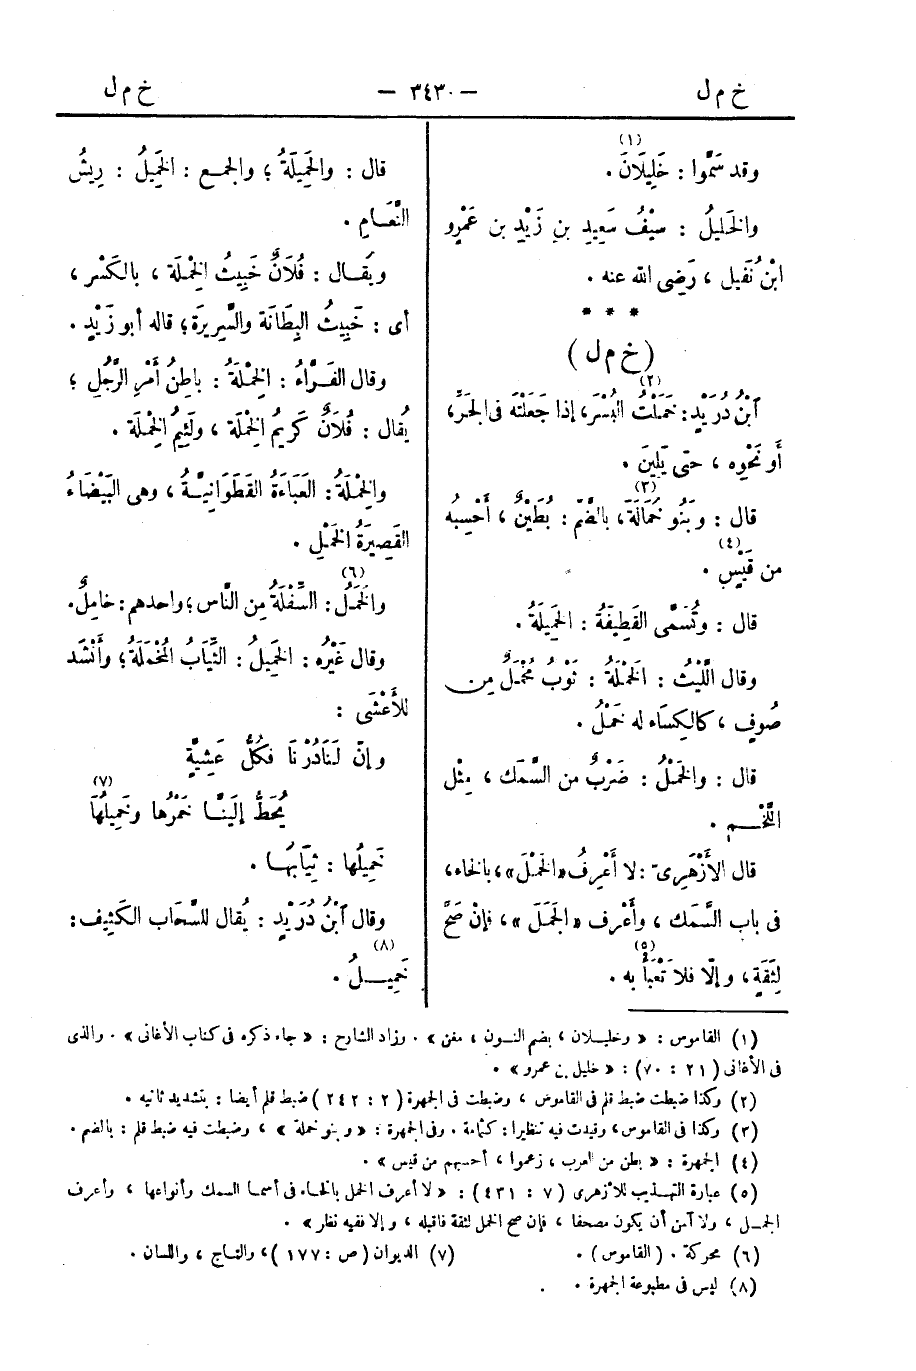 خ م ل — ٣٤٣٠ — خ م ل
(١)
وقد سَمَّوا : خَلِيلَانَ .
والخَلِيلُ : سيْفُ سَعِيدِ بنِ زَيْدِ بن عَمْرِو
ابْنُ نُفَيل ، رَضِى الله عنه .
* * *
( خ م ل )
(٢)
ٱبْنُ دُرَيْدٍ : خَمَلْتُ البُسْرَ ، إذا جَعَلْتَه فى الجَرِّ ،
أو نَحْوِه ، حتى يَلِينَ .
(٣)
قال : وبَنُو خُمَالَةَ ، بالضَّمّ : بُطَيْنٌ ، أَحْسِبُه
(٤)
من قَيْسٍ .
قال : وتُسَمَّى القَطِيفَةُ : الخَمِيلَةُ .
وقال اللَّيْثُ : الخَمْلَةُ : ثَوْبٌ مُخْمَلٌ من
صُوفٍ ، كالكِسَاء له خَمْلٌ .
قال : والخَمْلُ : ضَرْبٌ من السَّمَك ، مِثْل
اللُّخْم .
قال الأَزْهَرِىّ : لا أَعْرِفُ «الخَمْلَ» ، بالخاء ،
فى باب السَّمَك ، وأَعْرِف «الجَمَلَ» ، فإنْ صَحَّ
(٥)
لِثِقَةٍ ، وإلّا فلا تَعْبَأْ به .
قال : والخَمِيلَةُ ؛ والجمع : الخَمِيلُ : رِيشُ
النَّعَامِ .
ويُقال : فُلَانٌ خَبِيثُ الخِمْلَة ، بالكَسْر ،
أى : خَبِيثُ البِطَانَة والسَّرِيرَة ؛ قاله أبو زَيْدٍ .
وقال الفَرَّاءُ : الخِمْلَةُ : باطِنُ أَمْرِ الرَّجُلِ ؛
يُقال : فُلَانٌ كَرِيمُ الخِمْلَة ، ولَئِيمُ الخِمْلَة .
والخِمْلَةُ : العَبَاءَةُ القَطَوَانِيَّةُ ، وهى البَيْضَاءُ
القَصِيرَةُ الخَمْلِ .
(٦)
والخَمَلُ : السَّفَلَةُ مِن النَّاس ؛ واحدهم : خامِلٌ .
وقال غَيْرُه : الخَمِيلُ : الثِّيَابُ المُخْمَلَةُ ؛ وأَنْشَد
للأَعْشَى :
وإنّ لَنَادُرْنَا فكُلُّ عَشِيَّةٍ
(٧)
يُحَطُّ إلَيْنَا خَمْرُها وخَمِيلُهَا
خَمِيلُها : ثِيَابُهَا .
وقال ٱبْنُ دُرَيْدٍ : يُقال للسَّحَاب الكَثِيف :
(٨)
خَمِيلٌ .
(١) القاموس : « وخليلان ، بضم النون ، مغن » . وزاد الشارح : « جاء ذكره فى كتاب الأغانى » . والذى
فى الأغانى ( ٢١ : ٧٠ ) : « خليل بن عمرو » .
(٢) وكذا ضبطت ضبط قلم فى القاموس ، وضبطت فى الجمهرة ( ٢ : ٢٤٢ ) ضبط قلم أيضا : بتشديد ثانيه .
(٣) وكذا فى القاموس ، وقيدت فيه تنظيرا : كثمامة . وفى الجمهرة : « وبنو خملة » ، وضبطت فيه ضبط قلم : بالضم .
(٤) الجمهرة : « بطن من العرب ، زعموا ، أحسبهم من قيس » .
(٥) عبارة التهذيب للأزهرى ( ٧ : ٤٣١ ) : « لا أعرف الخمل بالخاء فى أسما السمك وأنواعها ، وأعرف
الجمل ، ولا آمن أن يكون مصحفا ، فإن صح الخمل لثقة فاقبله ، وإلا ففيه نظر » .
(٦) محركة . ( القاموس ) . (٧) الديوان ( ص : ١٧٧ ) ، والتاج ، واللسان .
(٨) ليس فى مطبوعة الجمهرة .